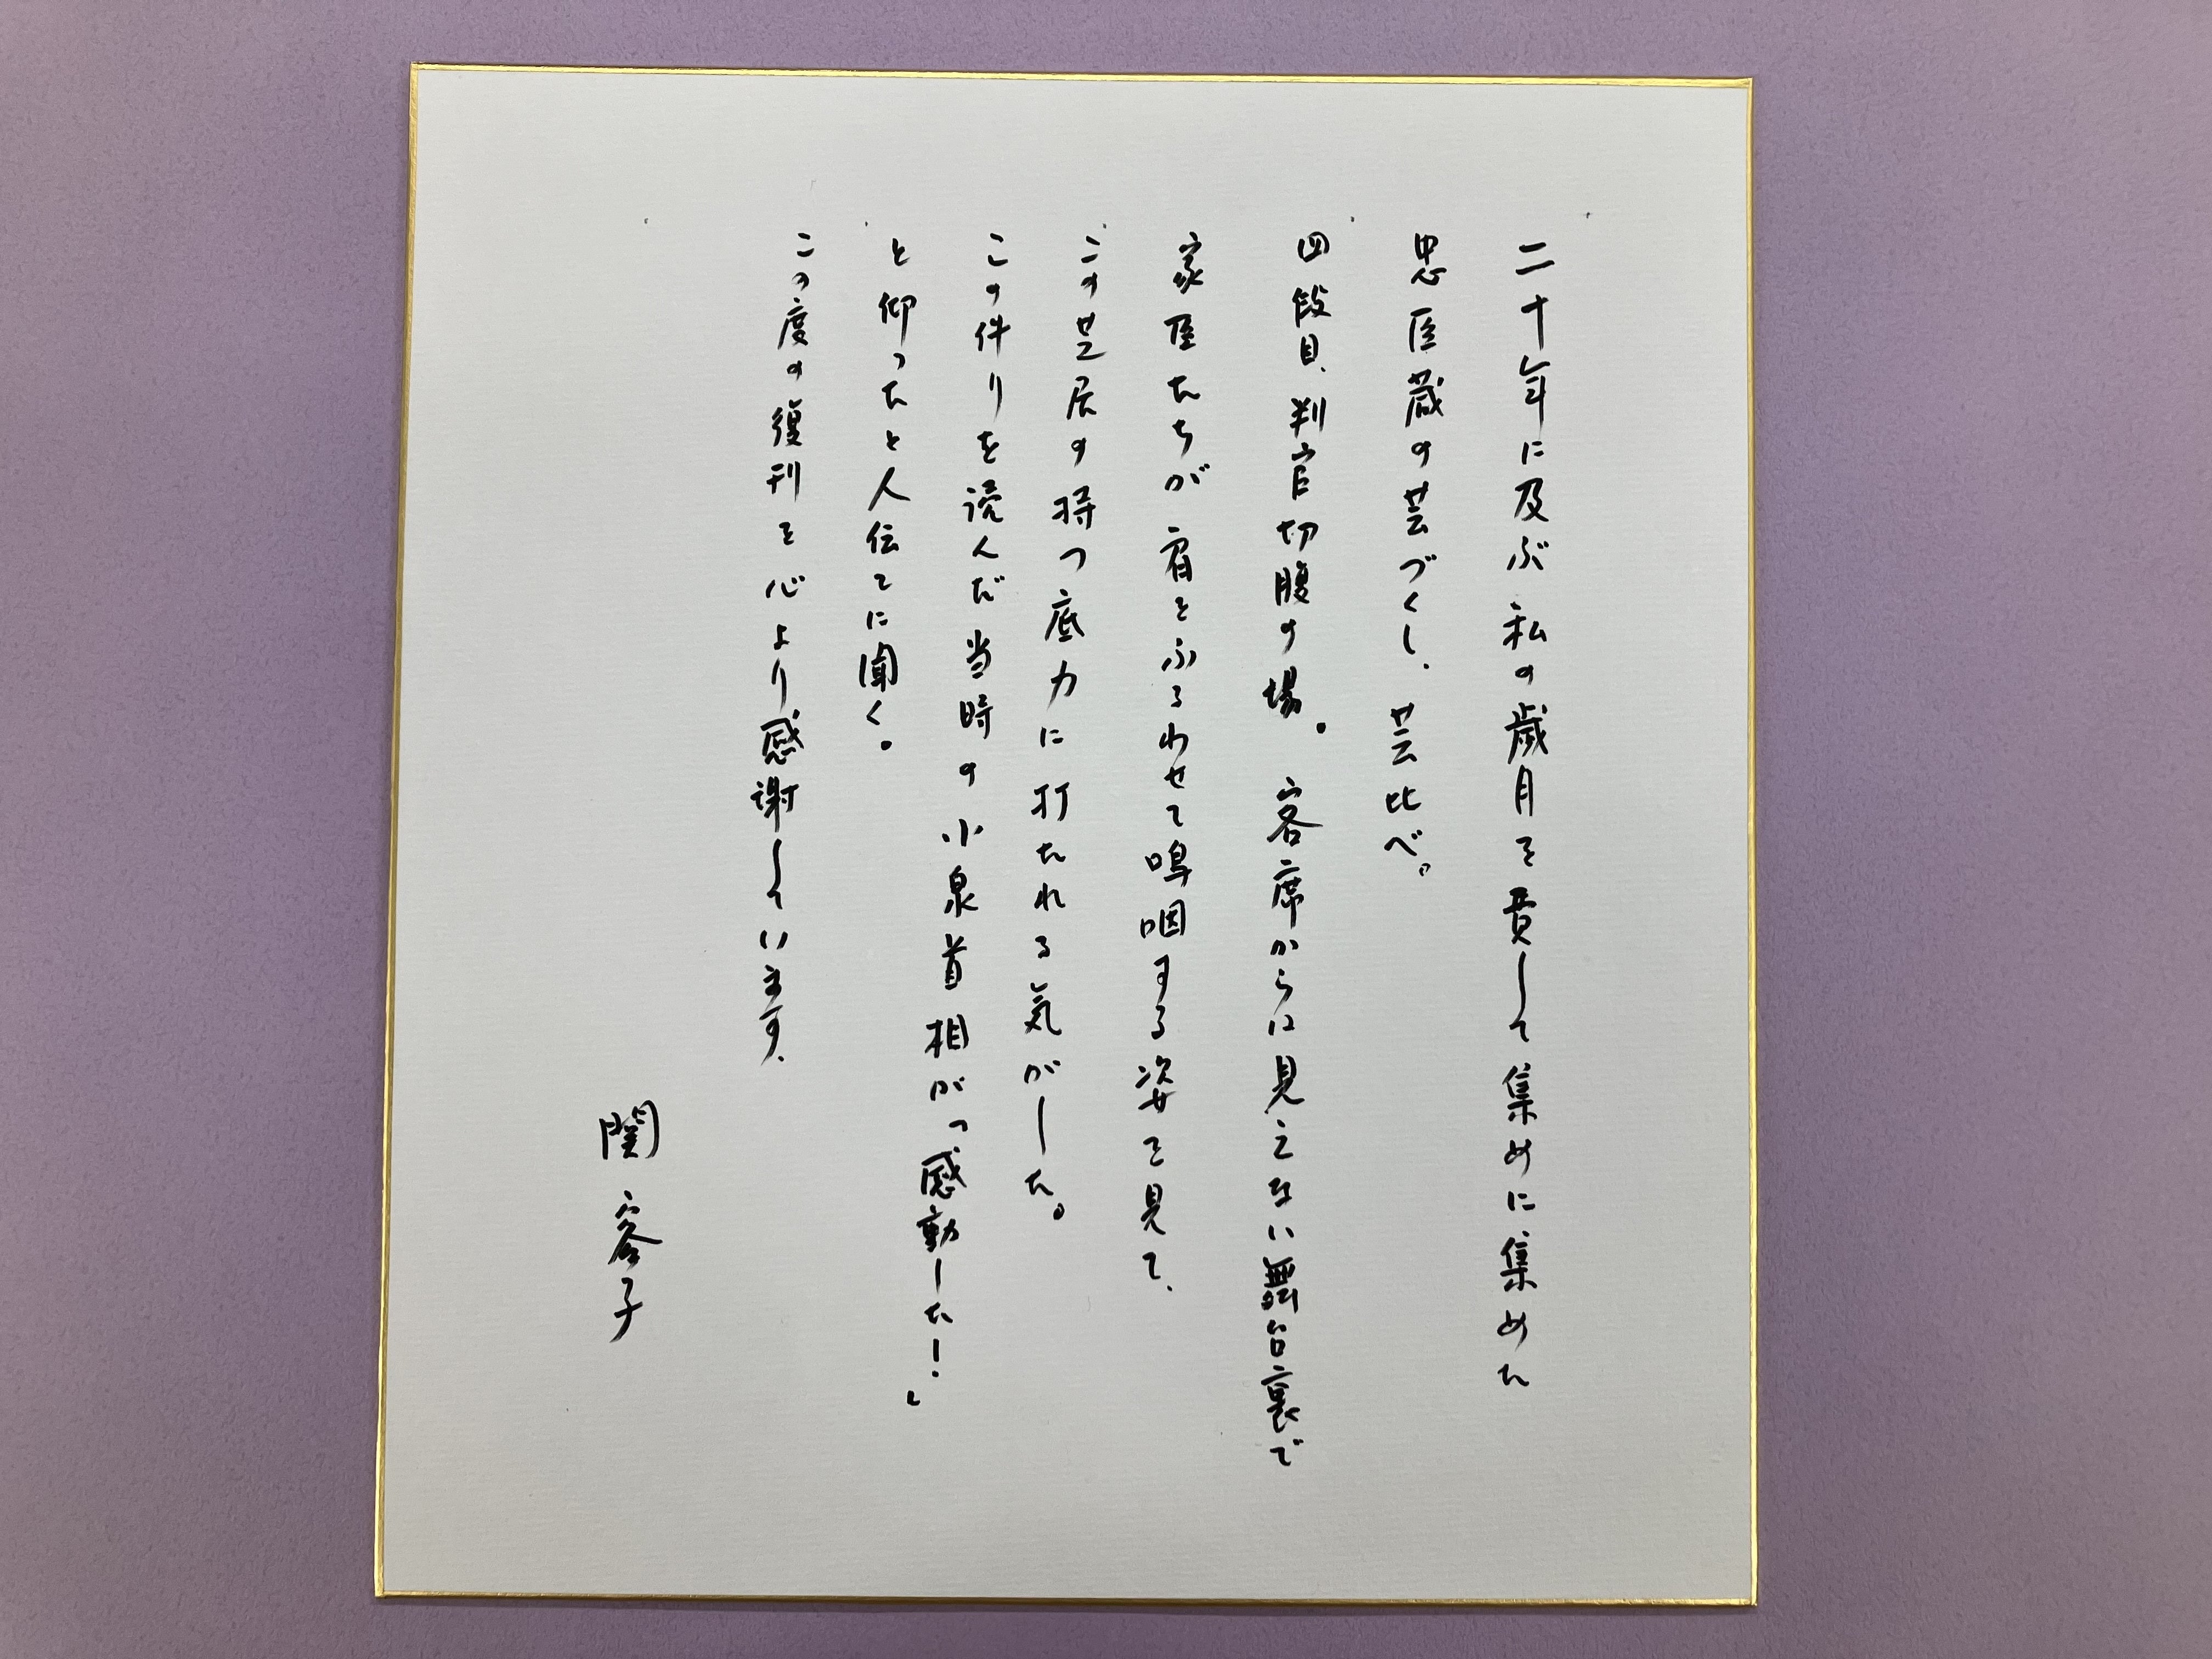 二十年に及ぶ私の歳月を費して集めに集めた
忠臣蔵の芸づくし、芸比べ。
四段目、判官切腹の場。客席からは見えない舞台裏で
家臣たちが肩をふるわせて嗚咽する姿を見て、
この芝居の持つ底力に打たれる気がした。
この件りを読んだ当時の小泉首相が「感動した！」
と仰ったと人伝てに聞く。
この度の復刊を心より感謝しています。
関容子